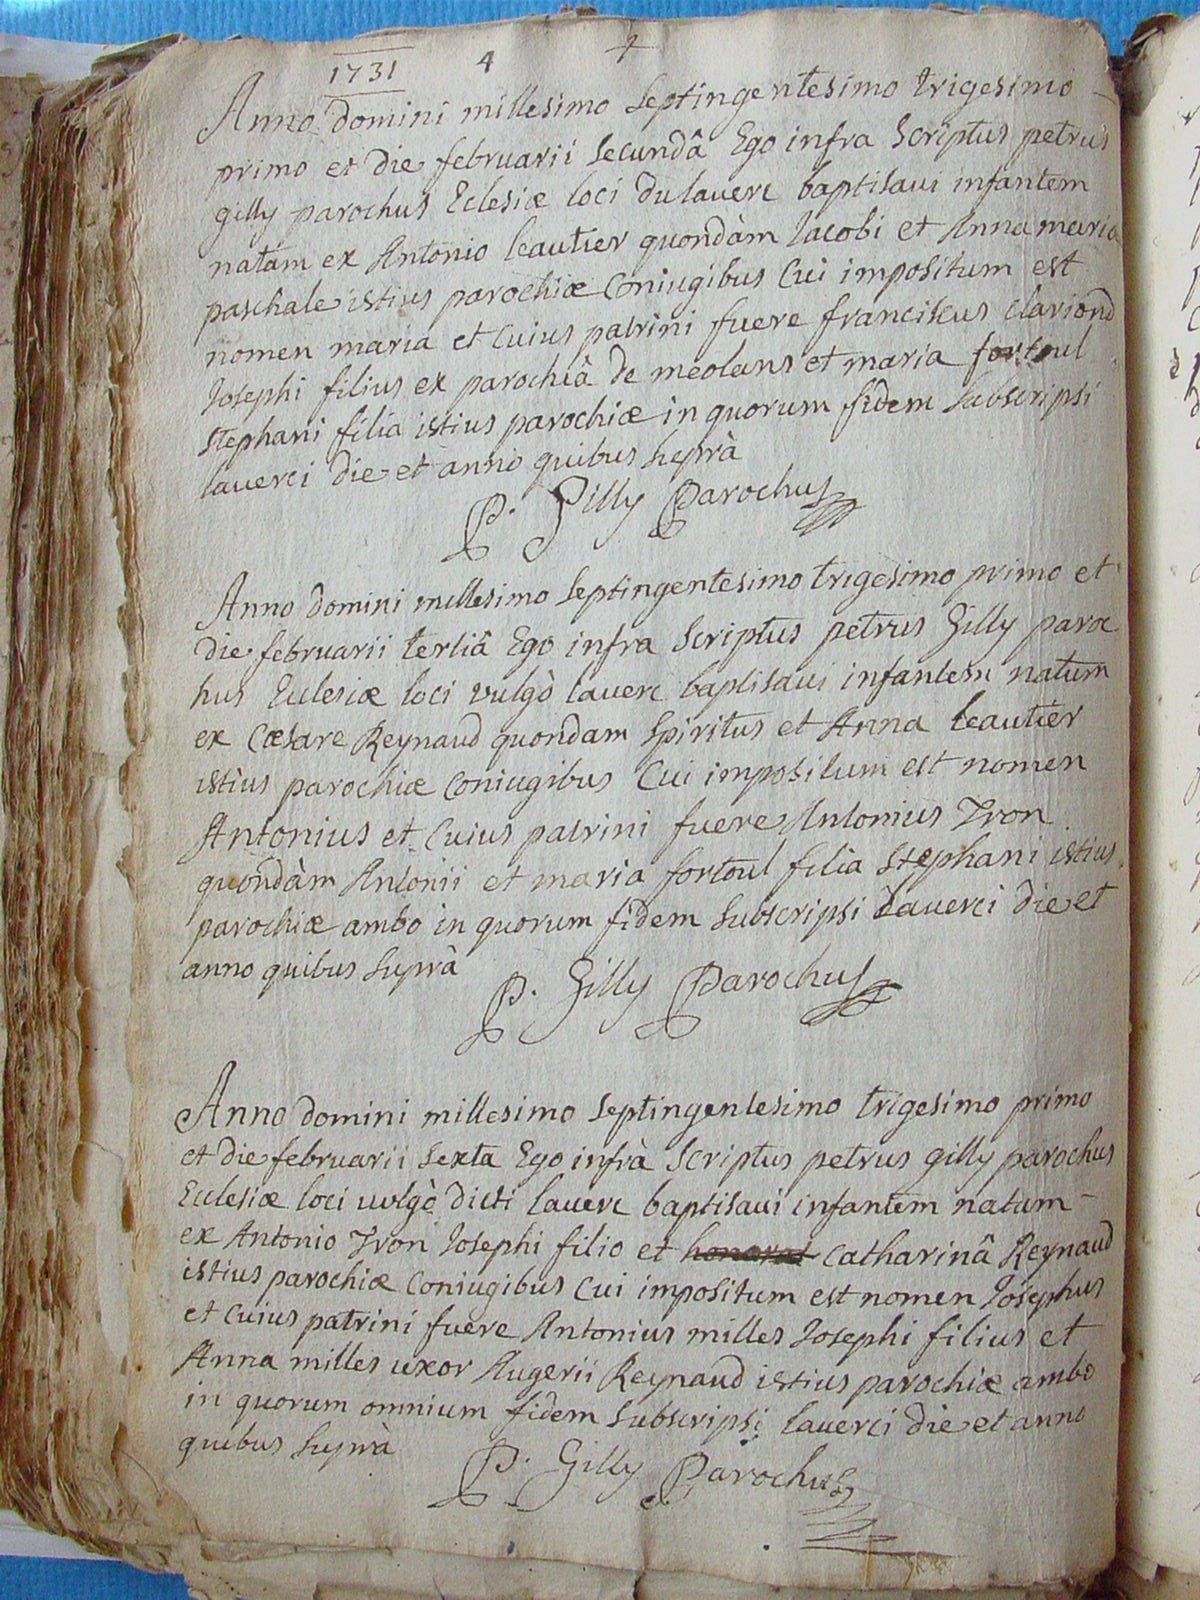 1731 4 +
Anno domini millesimo septingentesimo trigesimo
primo et die februarii secundâ Ego infra scriptus petrus
gilly parochus Eclesiæ loci du lauerc baptisaui infantem
natam ex Antonio leautier quondàm Jacobi et Anna maria
paschale istius parochiæ coniugibus cui impositum est
nomen maria et cuius patrini fuere franciscus clariond
Josephi filius ex parochiâ de meolans et maria fortoul
stephani filia istius parochiæ in quorum fidem subscripsi
lauerci die et anno quibus suprà
P. Gilly Parochus
Anno domini millesimo septingentesimo trigesimo primo et
die februarii tertiâ Ego infra scriptus petrus Gilly paroc
hus Ecclesiæ loci vulgò lauerc baptisaui infantem natum
ex Cæsare Reynaud quondam spiritus et Anna leautier
istius parochiæ coniugibus cui impositum est nomen
Antonius et cuius patrini fuere Antonius Tron
quondàm Antonii et maria fortoul filia stephani istius
parochiæ ambo in quorum fidem subscripsi lauerci die et
anno quibus suprà
P. Gilly Parochus
Anno domini millesimo septingentesimo trigesimo primo
et die februarii sexta Ego infrà scriptus petrus gilly parochus
Ecclesiæ loci vulgò dicti lauerc baptisaui infantem natum
ex Antonio Tron Josephi filio et honorat catharinâ Reynaud
istius parochiæ coniugibus cui impositum est nomen Josephus
et cuius patrini fuere Antonius milles Josephi filius et
Anna milles uxor Augerii Reynaud istius parochiæ ambo
in quorum omnium fidem subscripsi lauerci die et anno
quibus suprà
P. Gilly Parochus